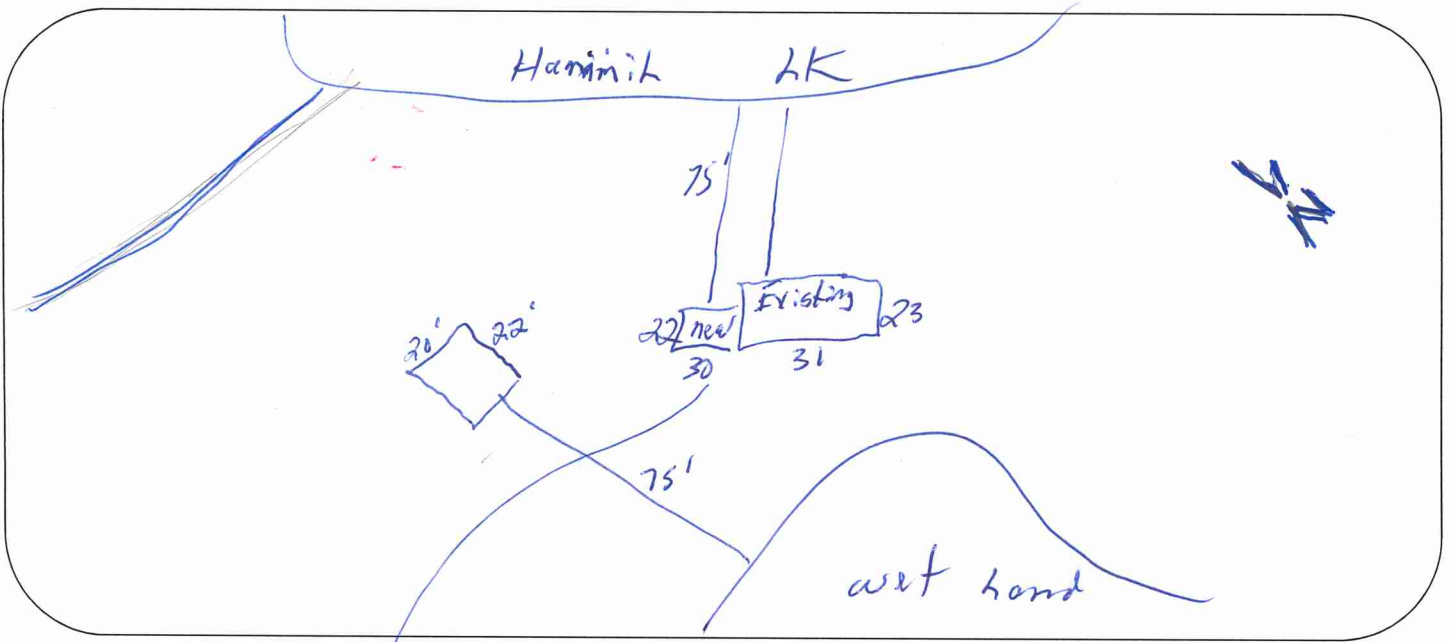 Hammil LK
75'
N
Existing
22 new 23
30 31
20' 22'
75'
wet Land